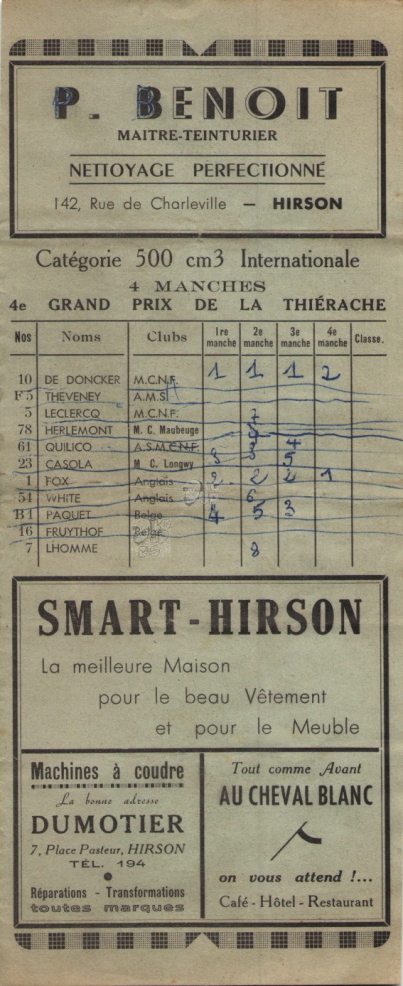 P. BENOIT
MAITRE-TEINTURIER
NETTOYAGE PERFECTIONNÉ
142, Rue de Charleville — HIRSON
Catégorie 500 cm3 Internationale
4 MANCHES
4e GRAND PRIX DE LA THIÉRACHE
Nos Noms Clubs 1re manche 2e manche 3e manche 4e manche Classe.
10 DE DONCKER M.C.N.F. 1 1 1 2
F 5 THEVENEY A.M.S
5 LECLERCQ M.C.N.F. 7
78 HERLEMONT M. C. Maubeuge
61 QUILICO A.S.M.C.N.F. 4
23 CASOLA M. C. Longwy 3 3 5
1 FOX Anglais 2 2 2 1
54 WHITE Anglais 6
B1 PAQUET Belge 4 5 3
16 FRUYTHOF Belge
7 LHOMME 8
SMART-HIRSON
La meilleure Maison
pour le beau Vêtement
et pour le Meuble
Machines à coudre
La bonne adresse
DUMOTIER
7, Place Pasteur, HIRSON
TÉL. 194
Réparations - Transformations
toutes marques
Tout comme Avant
AU CHEVAL BLANC
on vous attend !...
Café - Hôtel - Restaurant